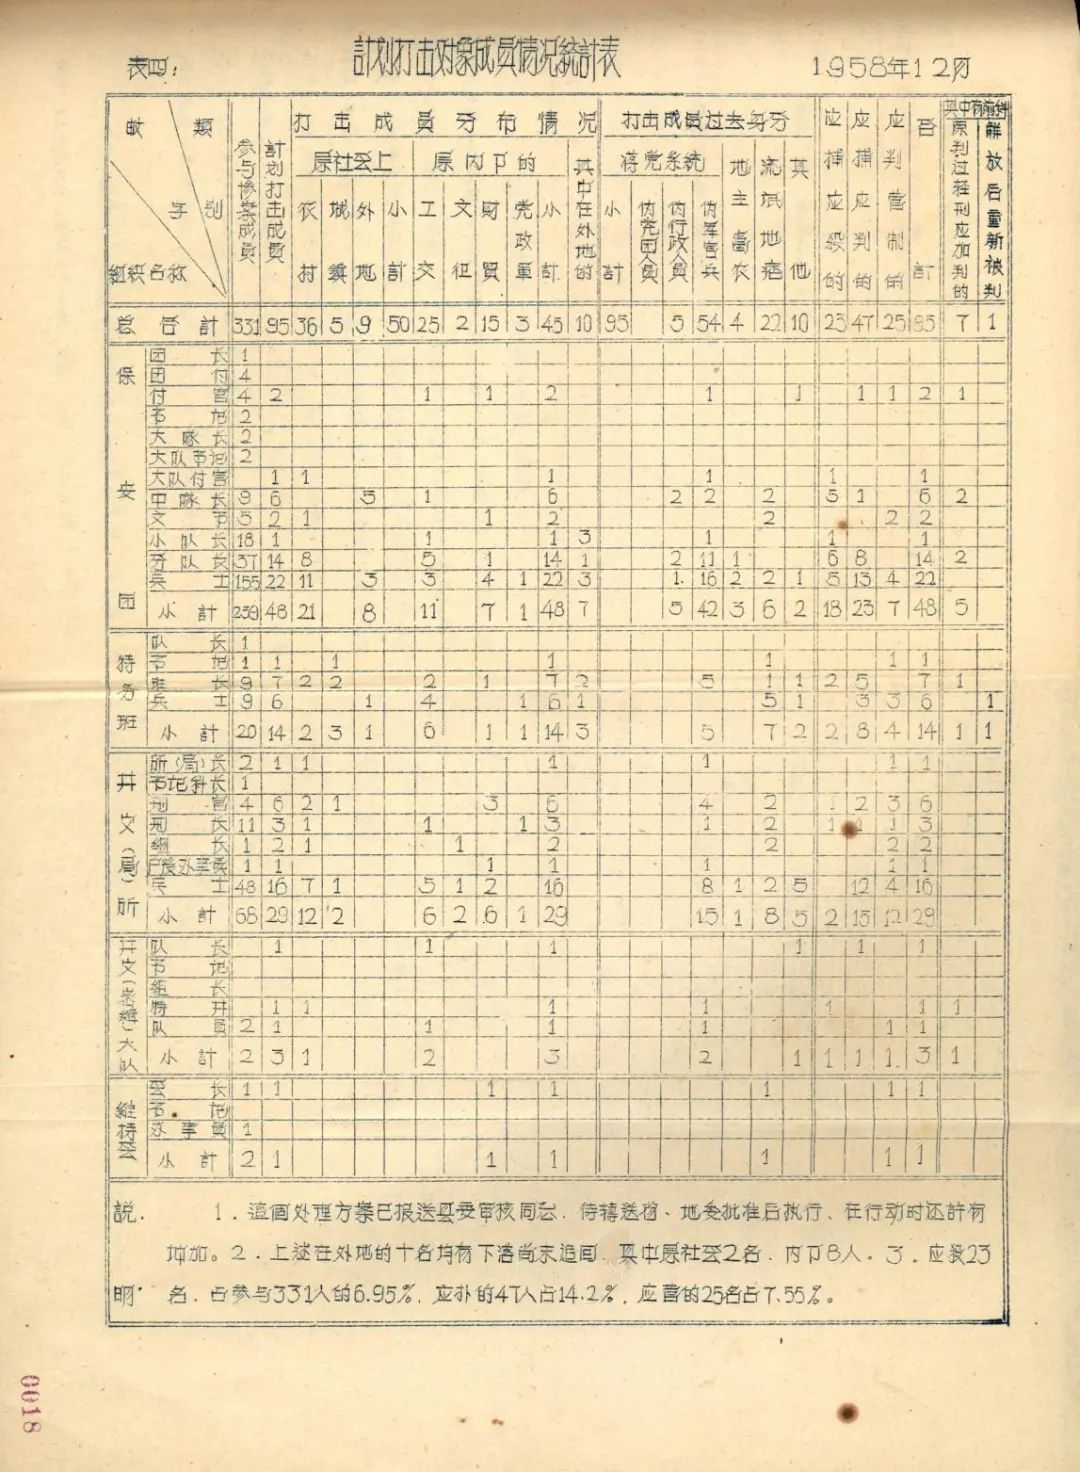 表四：
計划打击对象成員情况統計表
1958年12月
数 類 字 别 組织名称 参与惨案成員 計划打击成員 打击成員分布情况 打击成員过去身分 应捕应殺的 应捕应判的 应判管制的 合計 其中有前科
原社会上 原内部的 其中在外地的 蒋党系統 地主富农 流氓地痞 其他 原判过轻刑应加判的 解放后重新被判
农村 城鎮 外地 小計 工交 文征 財貿 党政軍 小計 小計 伪党团人員 伪行政人員 伪軍官兵
总合計 331 95 36 5 9 50 25 2 15 3 45 10 95 5 54 4 22 10 23 47 25 95 7 1
保安团
团长 1
团付 4
付官 4 2 1 1 2 1 1 1 1 2 1
书记 2
大隊长 2
大队书记 2
大队付官 1 1 1 1 1 1
中隊长 9 6 5 1 6 2 2 2 5 1 6 2
文书 5 2 1 1 2 2 2 2
小队长 18 1 1 1 3 1 1 1
分队长 37 14 8 5 1 14 1 2 11 1 6 8 14 2
兵士 155 22 11 3 3 4 1 22 3 1 16 2 2 1 5 13 4 22
小計 239 48 21 8 11 7 1 48 7 5 42 3 6 2 18 23 7 48 5
特务班
队长 1
书记 1 1 1 1 1 1 1
班长 9 7 2 2 2 1 7 2 5 1 1 2 5 7 1
兵士 9 6 1 4 1 6 1 5 1 3 3 6 1
小計 20 14 2 3 1 6 1 1 14 3 5 7 2 2 8 4 14 1 1
井文（局）所
所（局）长 2 1 1 1 1 1 1
书记科长 1
刑官 4 6 2 1 3 6 4 2 1 2 3 6
刑长 11 3 1 1 1 3 1 2 1 1 1 3
組长 1 2 1 1 2 2 2 2
户籍办事員 1 1 1 1 1 1 1
兵士 48 16 7 1 5 1 2 16 8 1 2 5 12 4 16
小計 68 29 12 2 6 2 6 1 29 15 1 8 5 2 15 12 29
大队
队长 1 1 1 1 1 1
书记
組长
特井 1 1 1 1 1 1 1
队員 2 1 1 1 1 1 1
小計 2 3 1 2 3 2 1 1 1 1 3 1
維持会
会长 1 1 1 1 1 1 1
书记
办事員 1
小計 2 1 1 1 1 1 1
説明： 1．這個处理方案已报送县委审核同意．待轉送省、地委批准后执行、在行动时还許有
增加。2．上述在外地的十名均有下落尚未追回．其中原社会2名．内部8人．3．应殺23
名．占参与331人的6.95%．应扑的47人占14.2%．应管的25名占7.55%。
0018